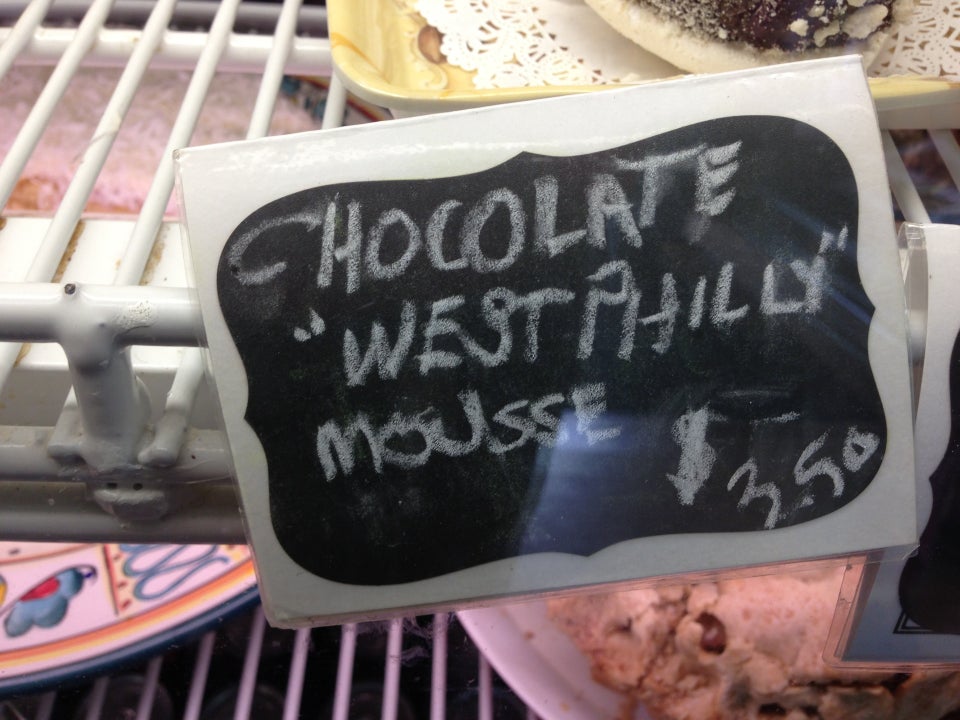 CHOCOLATE
"WEST PHILLY"
MOUSSE $ 3.50